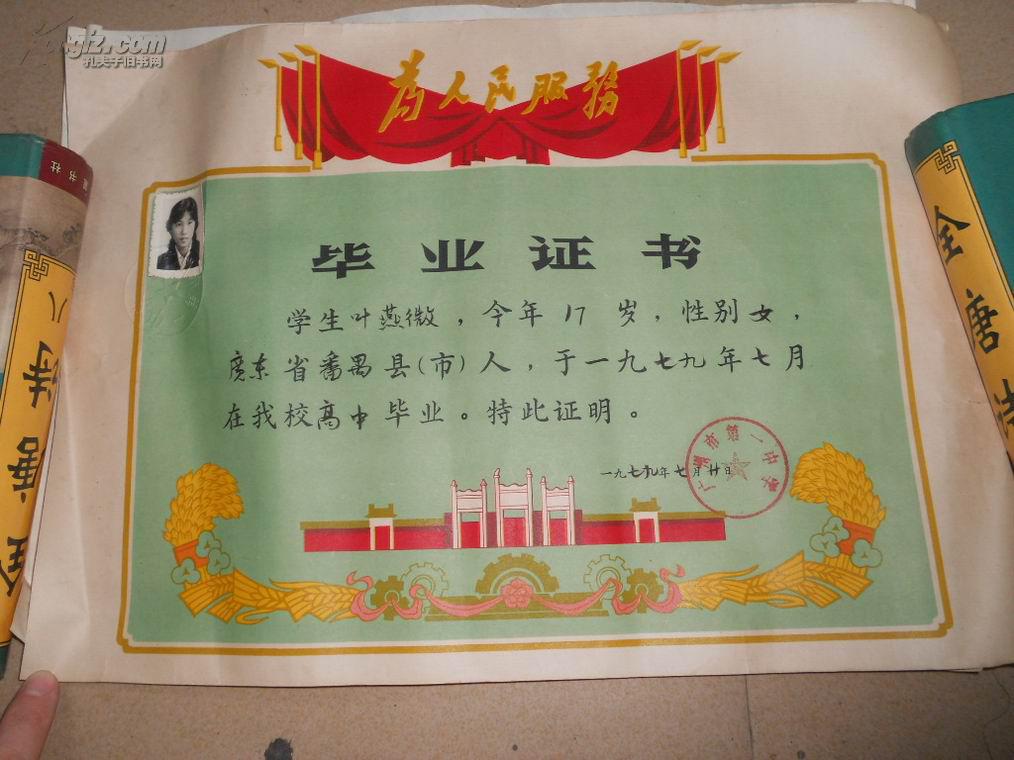 孔夫子旧书网
为人民服務
毕业证书
学生叶燕微，今年17岁，性别女，
广东省番禺县(市)人，于一九七九年七月
在我校高中毕业。特此证明。
一九七九年七月廿日
广州市第一中学
全唐诗
全唐诗
八
书社